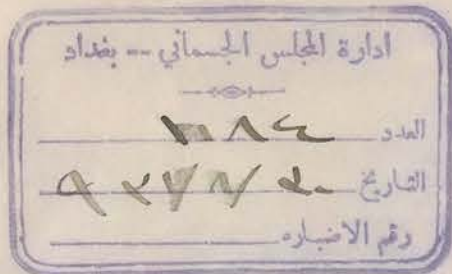 ادارة المجلس الجسماني -- بغداد
العدد
التاريخ
رقم الاضباره